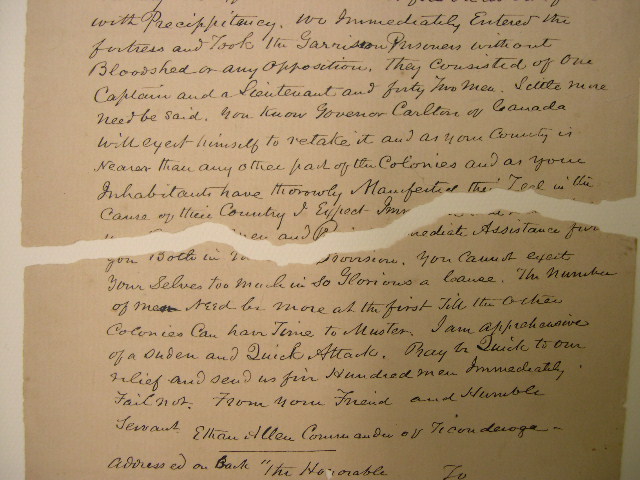 with Precippitency. We Immediately Entered the
fortress and Took the Garrison Prisoners without
Bloodshed or any opposition. They consisted of One
Captain and a Lieutenant and forty Two Men. Little more
need be said. You know Govenor Carlton of Canada
will exert himself to retake it and as your County is
Nearer than any other part of the Colonies and as your
Inhabitants have thorowly Manifested their Zeal in the
Cause of their Country I Expect Imm
men and mediate Assistance from
you Both in rovision. You cannot exert
Your Selves too much in so Glorious a Cause. The Number
of men Need be more at the first Till the Other
Colonies Can have Time to Muster. I am apprehensive
of a Suden and Quick Attack. Pray be Quick to our
relief and send us five Hundred men Immediately.
Fail not. From your Friend and Humble
Servant. Ethan Allen Commander of Ticonderoga -
Addressed on Back "The Honorable To